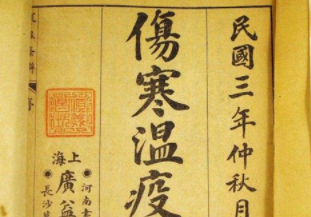 民國三年仲秋月
傷寒溫疫
上海
廣益
河南
長沙